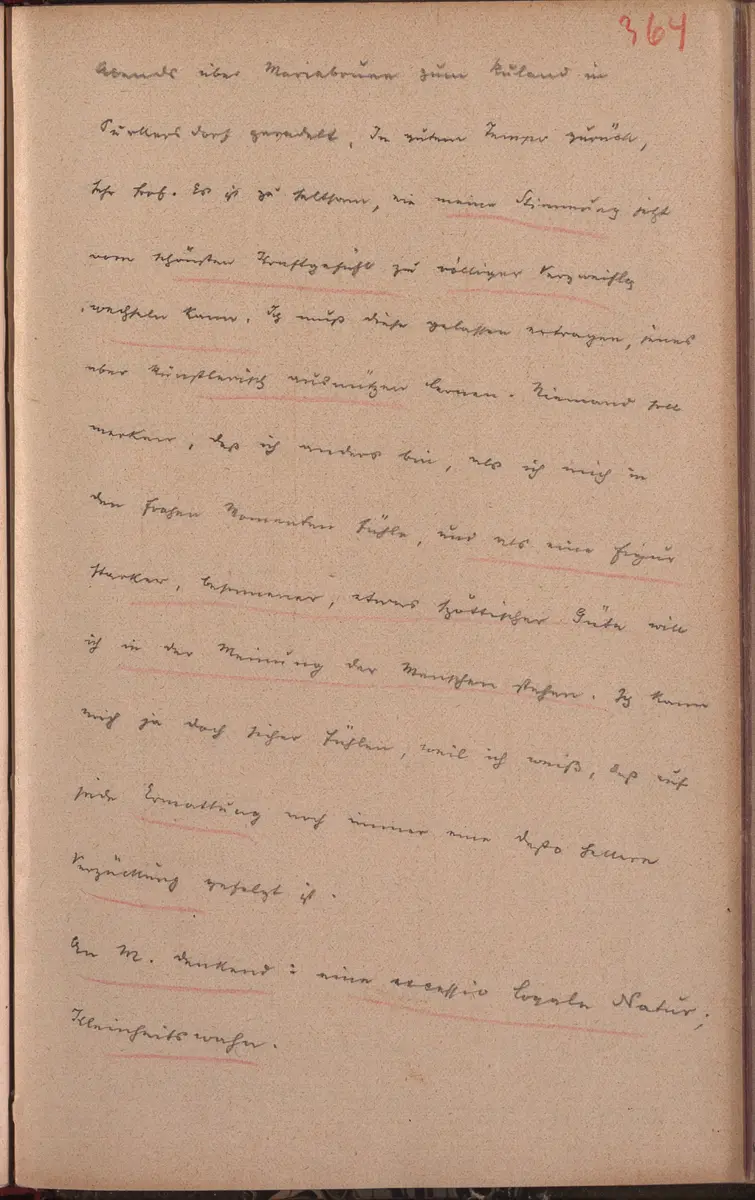 364
Abends über Mariabrunn zum Ruland in
Purkersdorf geradelt. In gutem Tempo zurück,
sehr froh. Es ist zu seltsam, wie meine Stimmung jetzt
vom schönsten Kraftgefühl zu völliger Verzweiflg
wechseln kann. Ich muß diese gelassen ertragen, jenes
aber künstlerisch ausnützen lernen. Niemand soll
merken, daß ich anders bin, als ich mich in
den frohen Momenten fühle, und als eine Figur
starker, besonnener, etwas spöttischer Güte will
ich in der Meinung der Menschen stehen. Ich kann
mich ja doch sicher fühlen, weil ich weiß, daß auf
jede Ermattung noch immer eine desto hellere
Verzückung gefolgt ist.
An M. denkend: eine excessiv loyale Natur;
Kleinheitswahn.